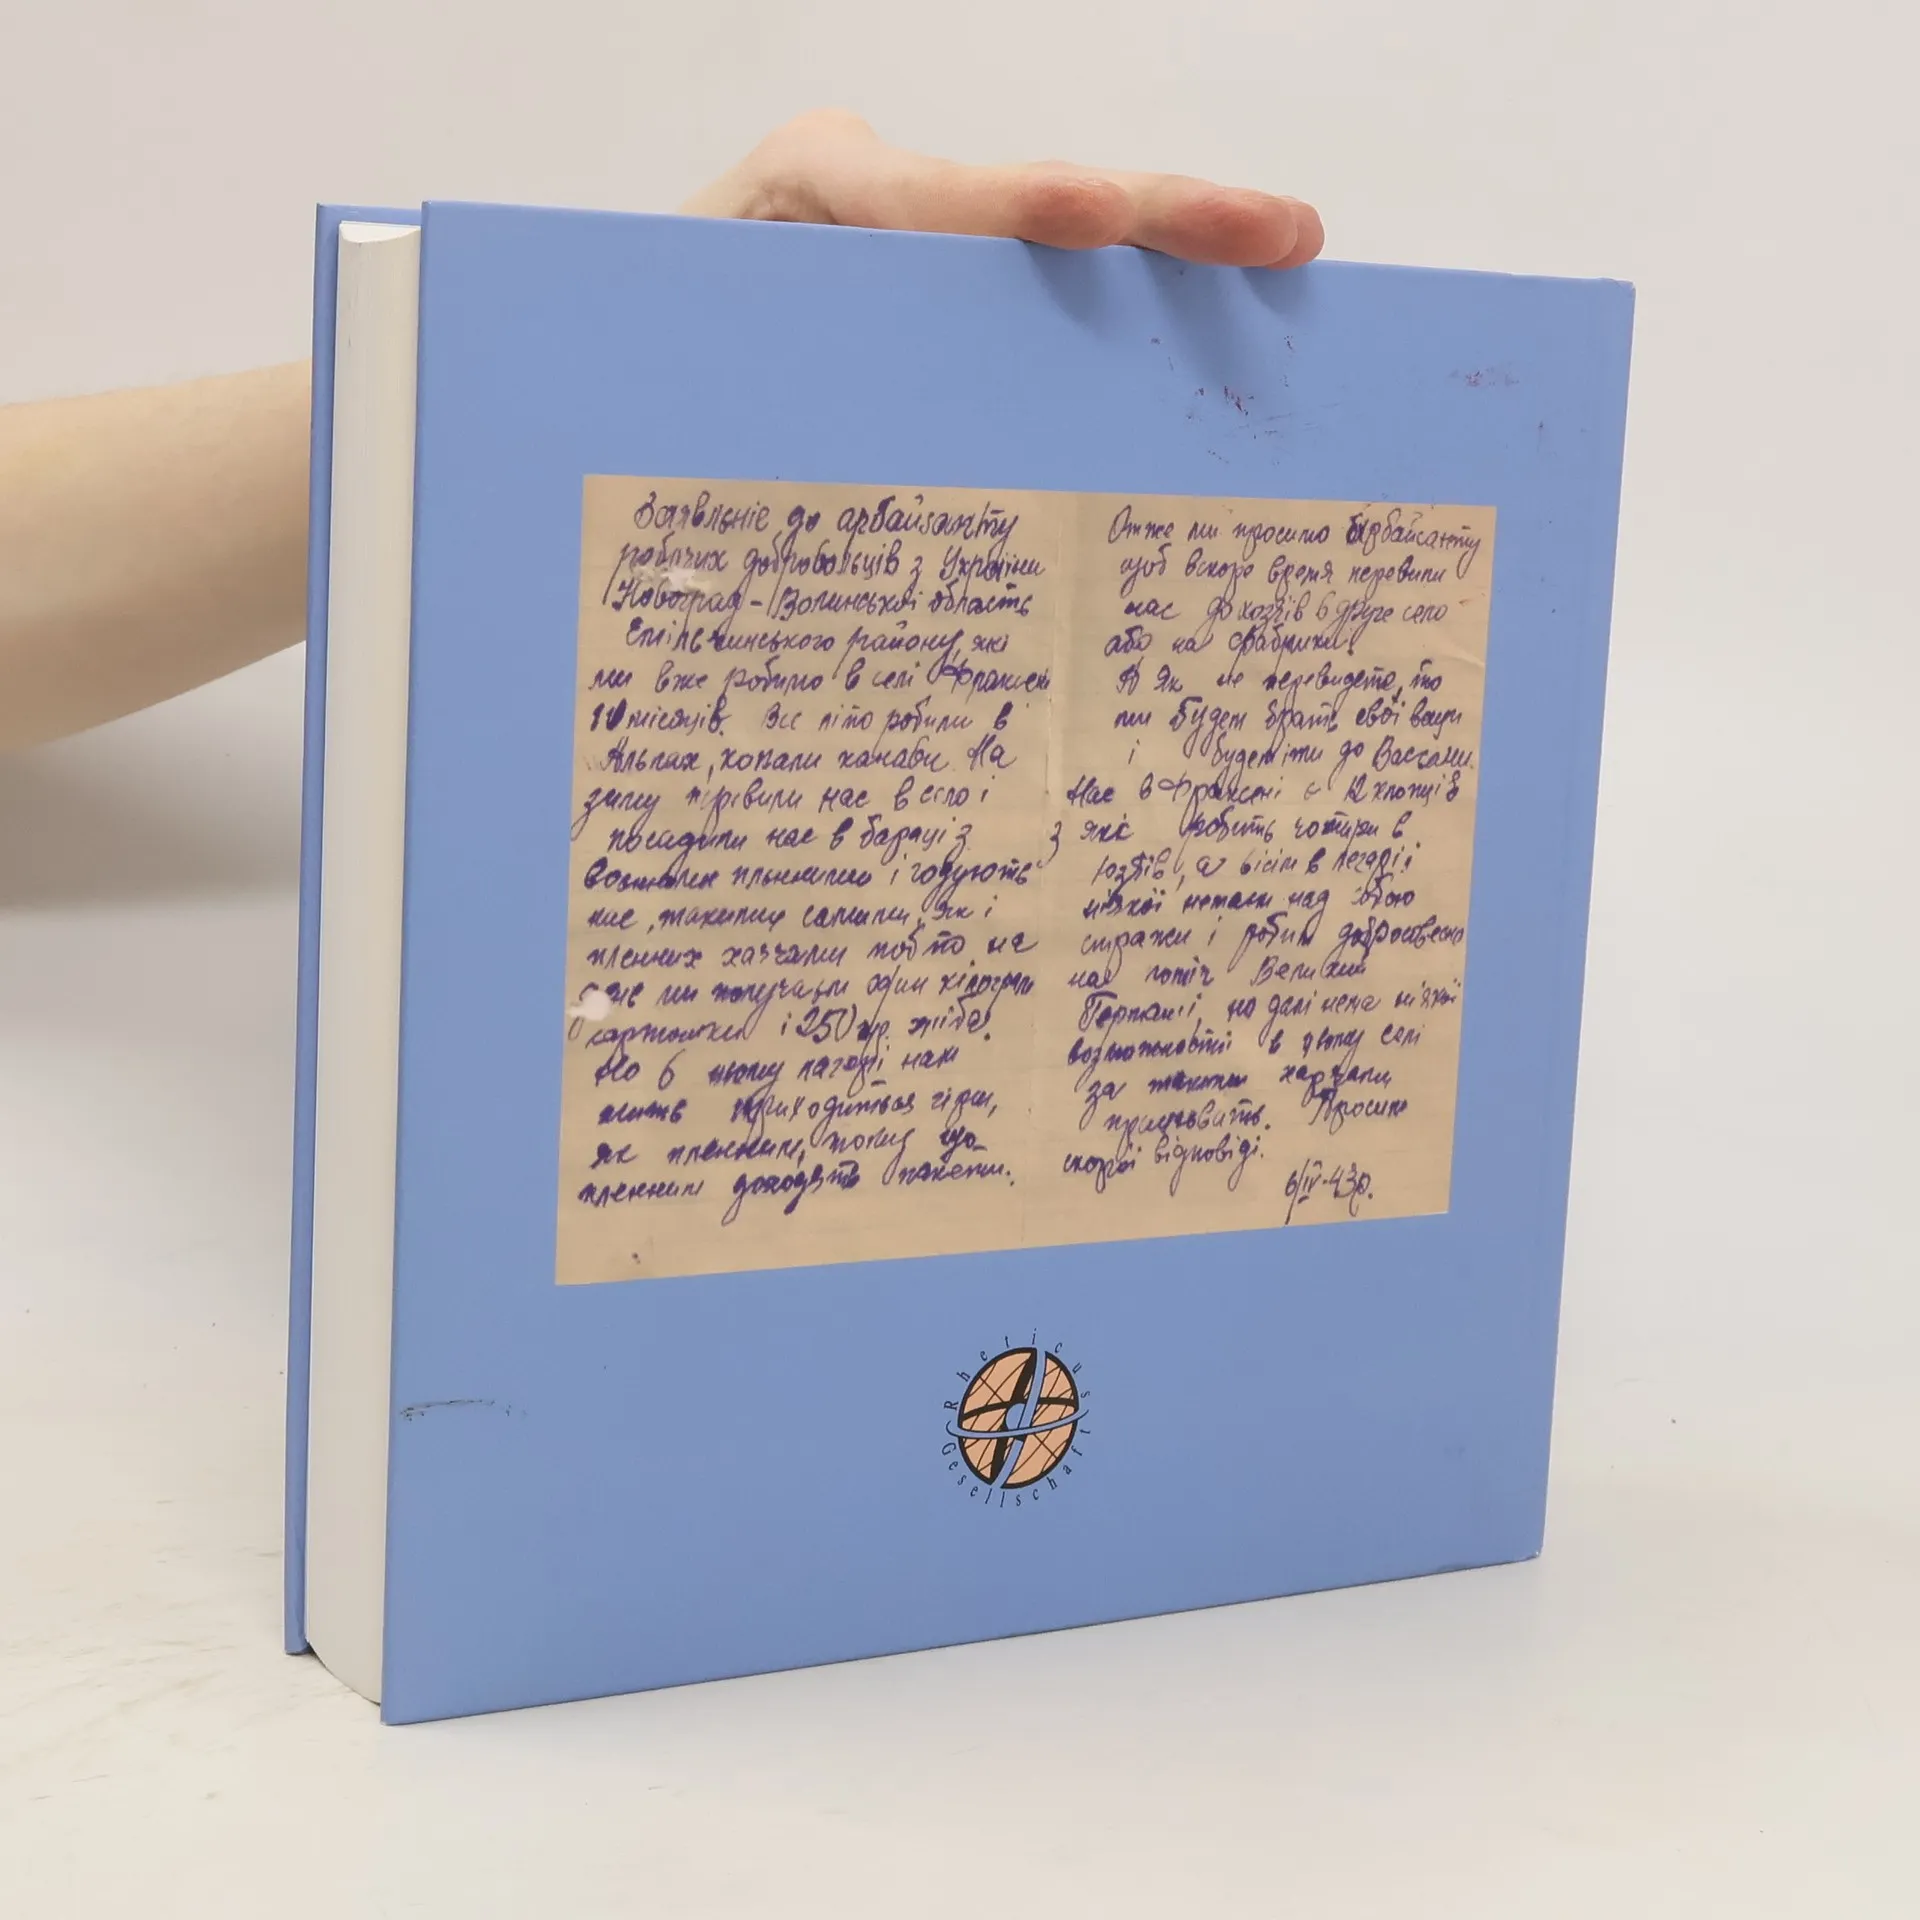 Заявлэніє до арбайзамту
робочих добровольців з України
Новоград-Волинської область
Ємільчинського району, які
ми вже робимо в селі Фраксен
10 місяців. Всі літо робили в
Альпах, копали канави. На
зиму перевили нас в село і
посадили нас в бараці з
пльонними і годують
нас, такилиц самими, як і
пленних харчами тобто на
ми получаєм один кілограм
картошки і 250 гр. хліба.
Но в цьому лагарі нам
жить приходиться гірш,
як пленним, тому що
пленним доходять пакети.
Отже ми просимо арбайсамту
щоб вскоре время перевили
нас до хозяїв в друге село
або на фабрики.
А як не переведете, то
ми будем брать свої вещи
і будем іти до
Нас в Фраксені є 12 хлопців
які робить чотири в
юзбів, а вісім в лагарі і
ніякої немаєм над собою
стражи і робим добросовесно
на Великий
Германії, но далі нема ніякої
возможності в цьому селі
за такими харчами
працювать. Просим
скорої відповіді.
6/IV-43р.
Rheticus
Gesellschaft